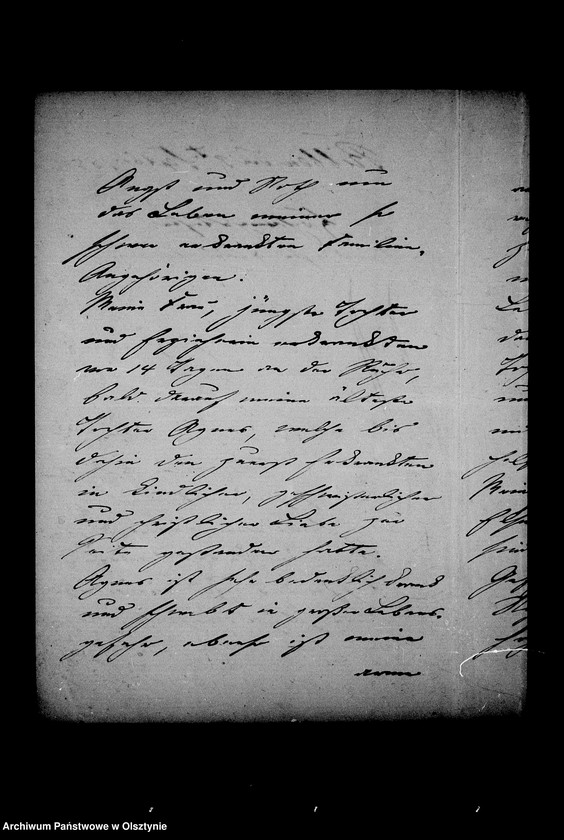 Angst und Noth um
das Leben meiner so
schwer erkrankten Familien-
Angehörigen.
Meine Frau, jüngste Tochter
und Erzieherin erkrankten
vor 14 Tagen an der Ruhr,
bald darauf meine älteste
Tochter Agnes, welche bis
dahin den zuerst Erkrankten
in kindlicher, geschwisterlicher
und christlicher Liebe zur
Seite gestanden hatte.
Agnes ist sehr bedenklich krank
und schwebt in großer Lebens-
gefahr, ebenso ist meine
arme
Archiwum Państwowe w Olsztynie